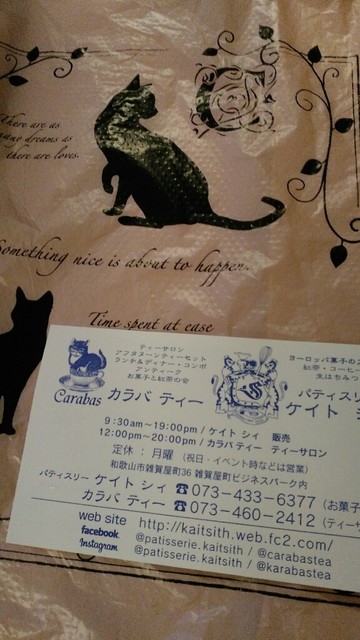 there are as
many dreams as
there are loves.
Something nice is about to happen.
Time spent at ease
ティーサロン
アフタヌーンティーセット
ランチ&ディナー・コンポ
アンティーク
お菓子と紅茶の会
Carabas カラバ ティー
ヨーロッパ菓子の
紅茶・コーヒー
生はちみつ
パティスリー
ケイト シ
9:30am~19:00pm / ケイト シィ 販売
12:00pm~20:00pm / カラバ ティー ティーサロン
定休 : 月曜 (祝日・イベント時などは営業)
和歌山市雑賀屋町36 雑賀屋町ビジネスパーク内
パティスリー ケイト シィ ☎073-433-6377 (お菓子
カラバ ティー ☎073-460-2412 (ティー
web site http://kaitsith.web.fc2.com/
facebook @patisserie.kaitsith / @carabastea
Instagram @patisserie.kaitsith / @karabastea